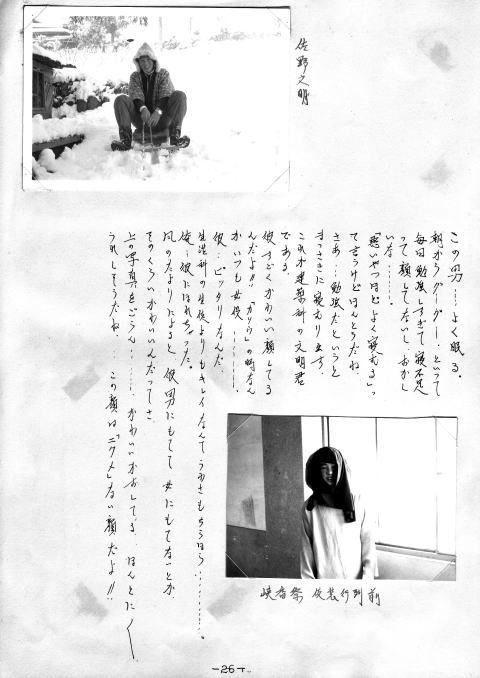 佐野文明
この男……よく眠る。
朝からグーグー、といって
毎日勉強しすぎて寝不足
って顔してないし、おかし
いな……。
「悪いやつほどよく寝むる」っ
て言うけどほんとうだね、
さあ…勉強だというと
まっさきに寝むります。
これが建築科の文明君
である。
彼すごくかわいい顔してる
んだよ!!「かりら」の時なん
かいつも女役………。
役…ピッタリなんだ
生活科の生徒よりもキレイなんてうわさもちらほら…………。
俺…彼にほれちゃった。
風のたよりによると、彼男にもてて女にもてないとか
そのくらいかわいいんだってさ。
上の写真をごらん……かわいいかおしてる、ほんとに
うれしそうだね、…この顔は「ニクメ」ない顔だよ!!
峡香祭 仮装行列前
-26-